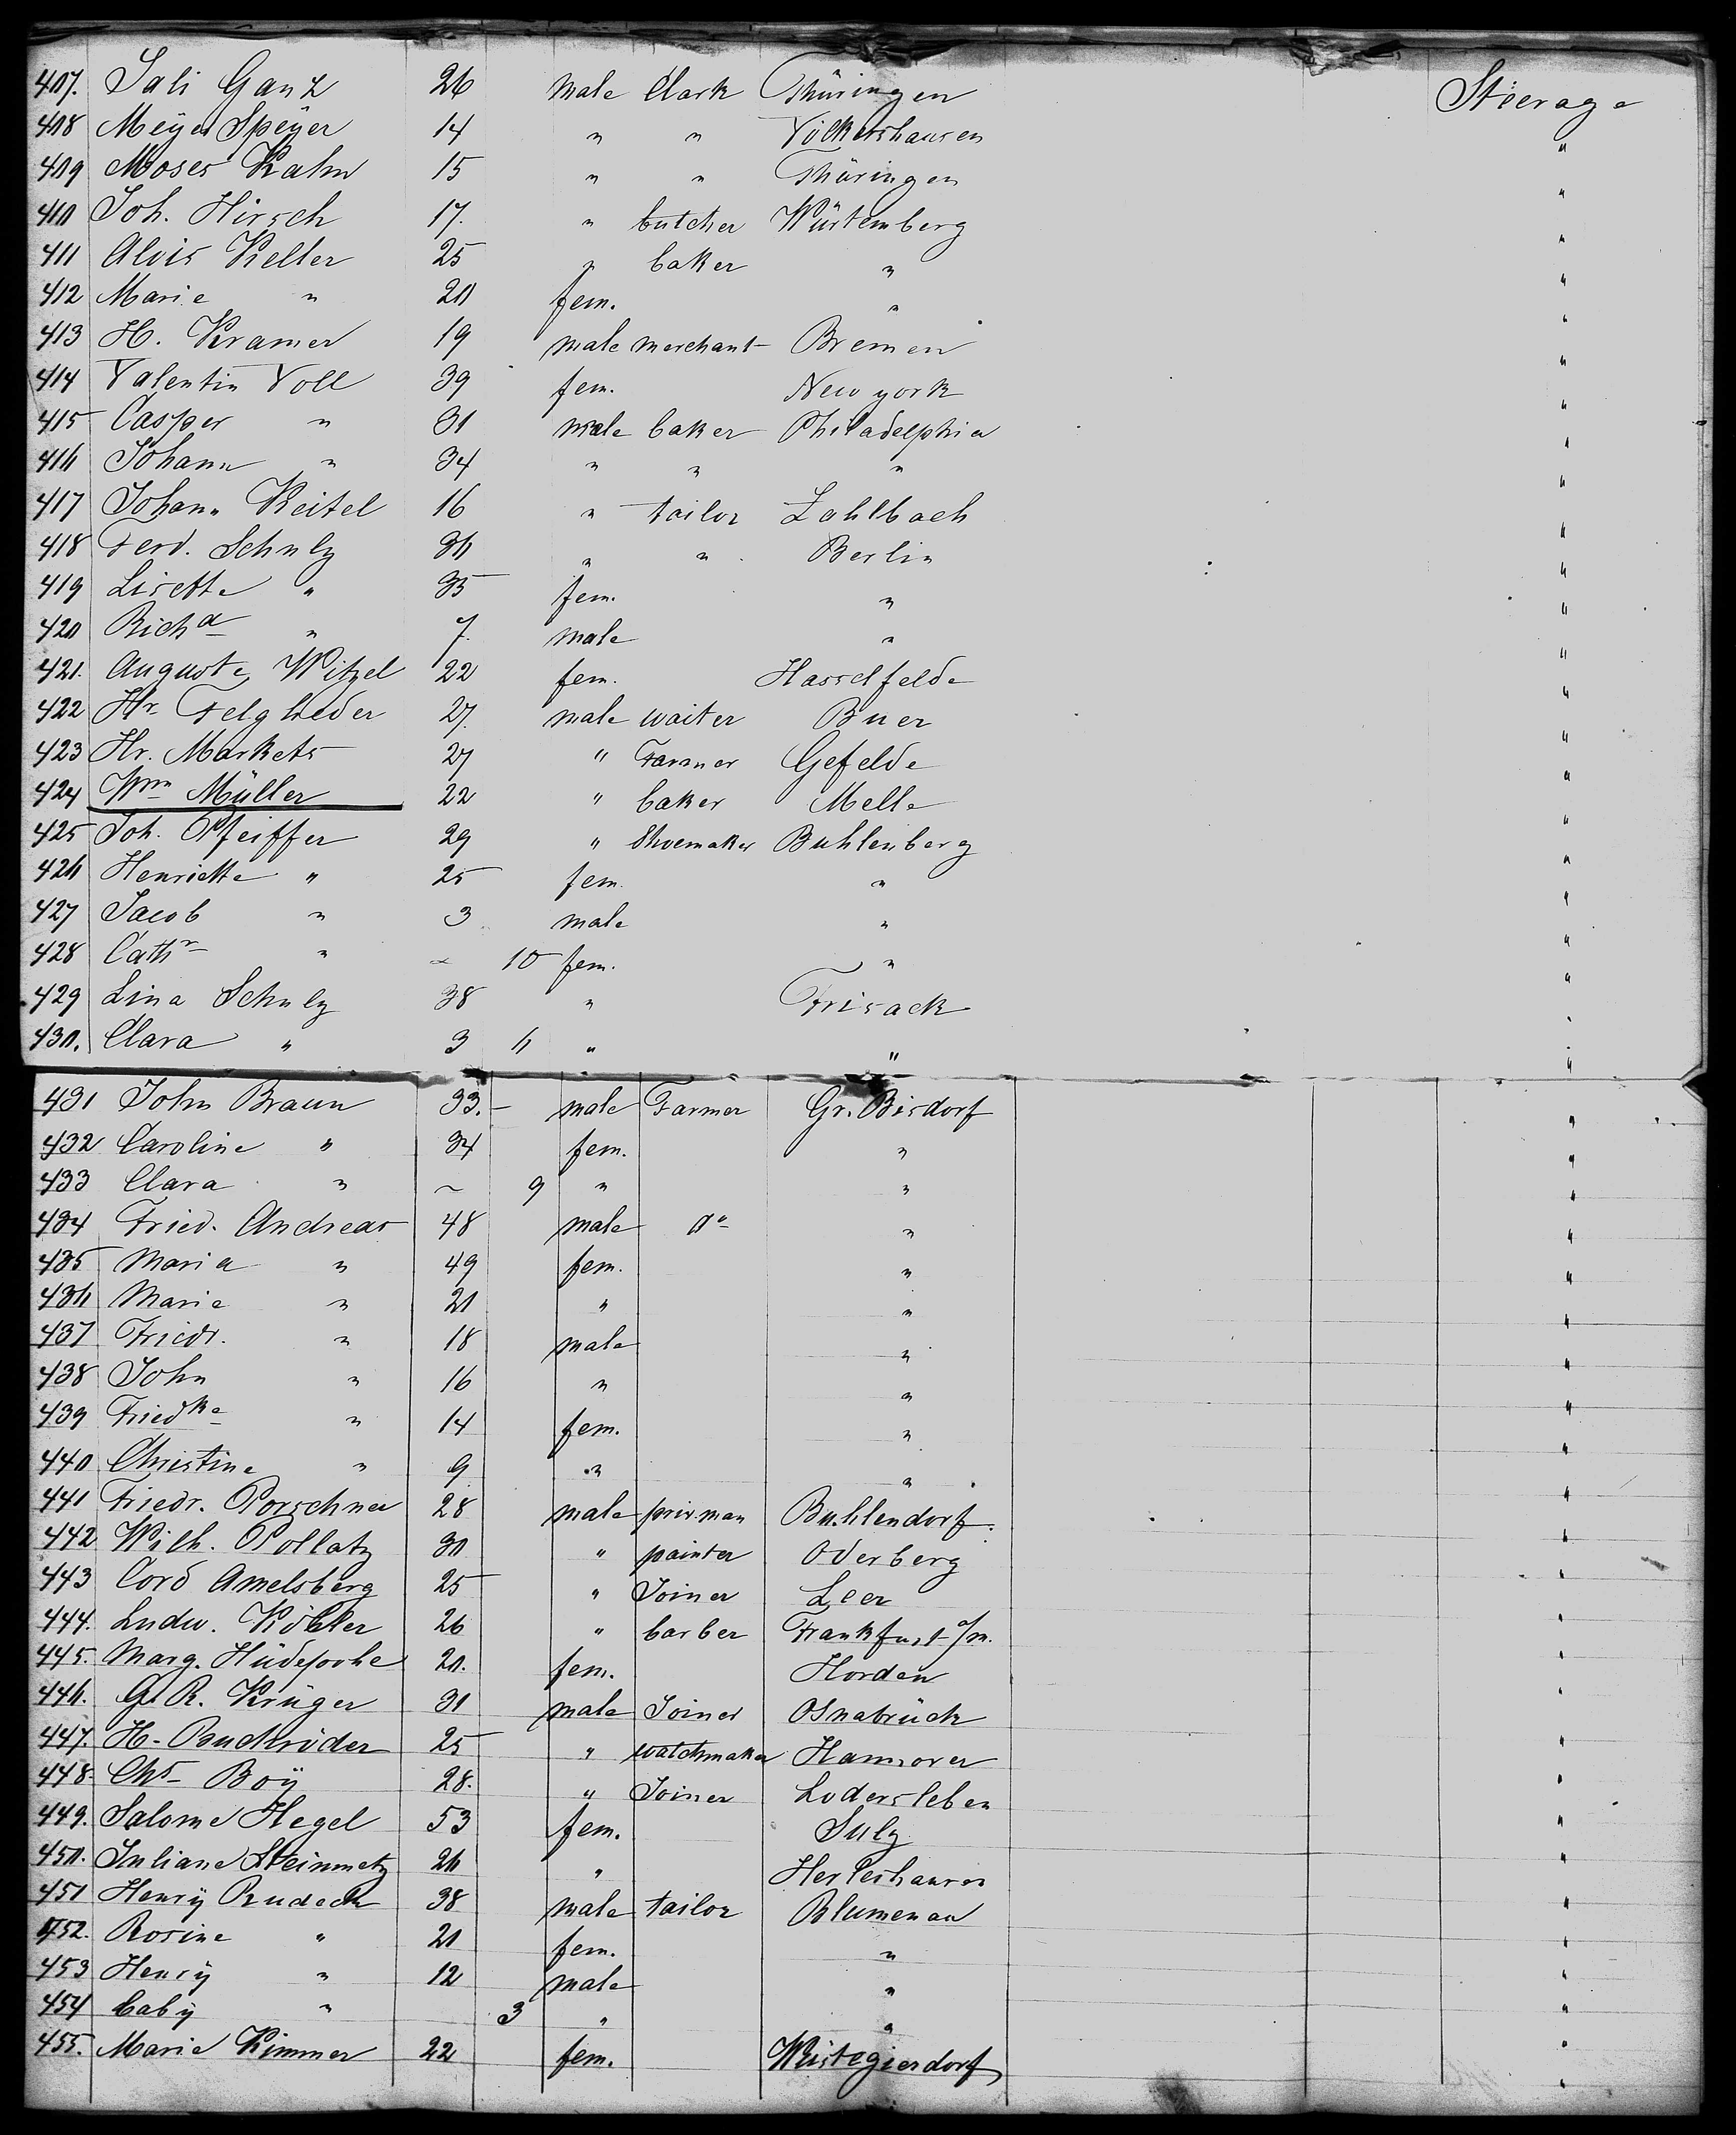 407. Sali Ganz 26 male Clark Thüringen Steerage
408 Meyer Speÿer 14 " " Völkershausen "
409 Moses Kahn 15 " " Thüringen "
410 Joh. Hirsch 17. " butcher Würtemberg "
411 Alois Keller 25 " baker " "
412 Marie " 20 fem. " "
413 H. Kramer 19 male merchant Bremen "
414 Valentin Voll 39 fem. New york "
415 Casper " 31 male baker Philadelphia "
416 Johann " 34 " " " "
417 Johann Keitel 16 " tailor Zahlbach "
418 Ferd. Schulz 36 " " Berlin "
419 Lisette " 35 fem. " "
420 Richd " 7. male " "
421. Auguste Witzel 22 fem. Hasselfelde "
422 Hr. Felglieder 27. male waiter Buer "
423 Hr. Markets 27 " Farmer Gefelde "
424 Wm Müller 22 " baker Melle "
425 Joh. Pfeiffer 29 " Shoemaker Buhlenberg "
426 Henriette " 25 fem. " "
427 Jacob " 3 male " "
428 Cathr " 10 fem. " "
429 Lina Schulz 38 " Frisack "
430. Clara " 3 6 " " "
431 John Braun 33. male Farmer Gr. Bisdorf "
432 Caroline " 34 fem. " "
433 Clara " ~ 9 " " "
434 Fried. Andreas 48 male do " "
435 Maria " 49 fem. " "
436 Marie " 21 " " "
437 Friedr. " 18 male " "
438 John " 16 " " "
439 Friedke " 14 fem. " "
440 Christine " 9 " " "
441 Friedr. Porschner 28 male priv. man Buhlendorf. "
442 Wilh. Pollatz 30 " painter Oderberg "
443 Cord Amelsberg 25 " Joiner Leer "
444. Ludw. Köhler 26 " barber Frankfurt a/m. "
445. Marg. Hüdepohe 20. fem. Horden "
446. G. R. Krüger 31 male Joiner Osnabrück "
447. H. Buckröder 25 " watchmaker Hannover "
448. Chs Boÿ 28. " Joiner Lodersleben "
449. Salome Hegel 53 fem. Sulz "
450. Juliane Steinmetz 26 " Herleshausen "
451 Henrÿ Rudeck 38 male tailor Blumenau "
452. Rosine " 21 fem. " "
453 Henrÿ " 12 male " "
454 babÿ " 3 " " "
455. Marie Kimmer 22 fem. Wüstegierdorf "